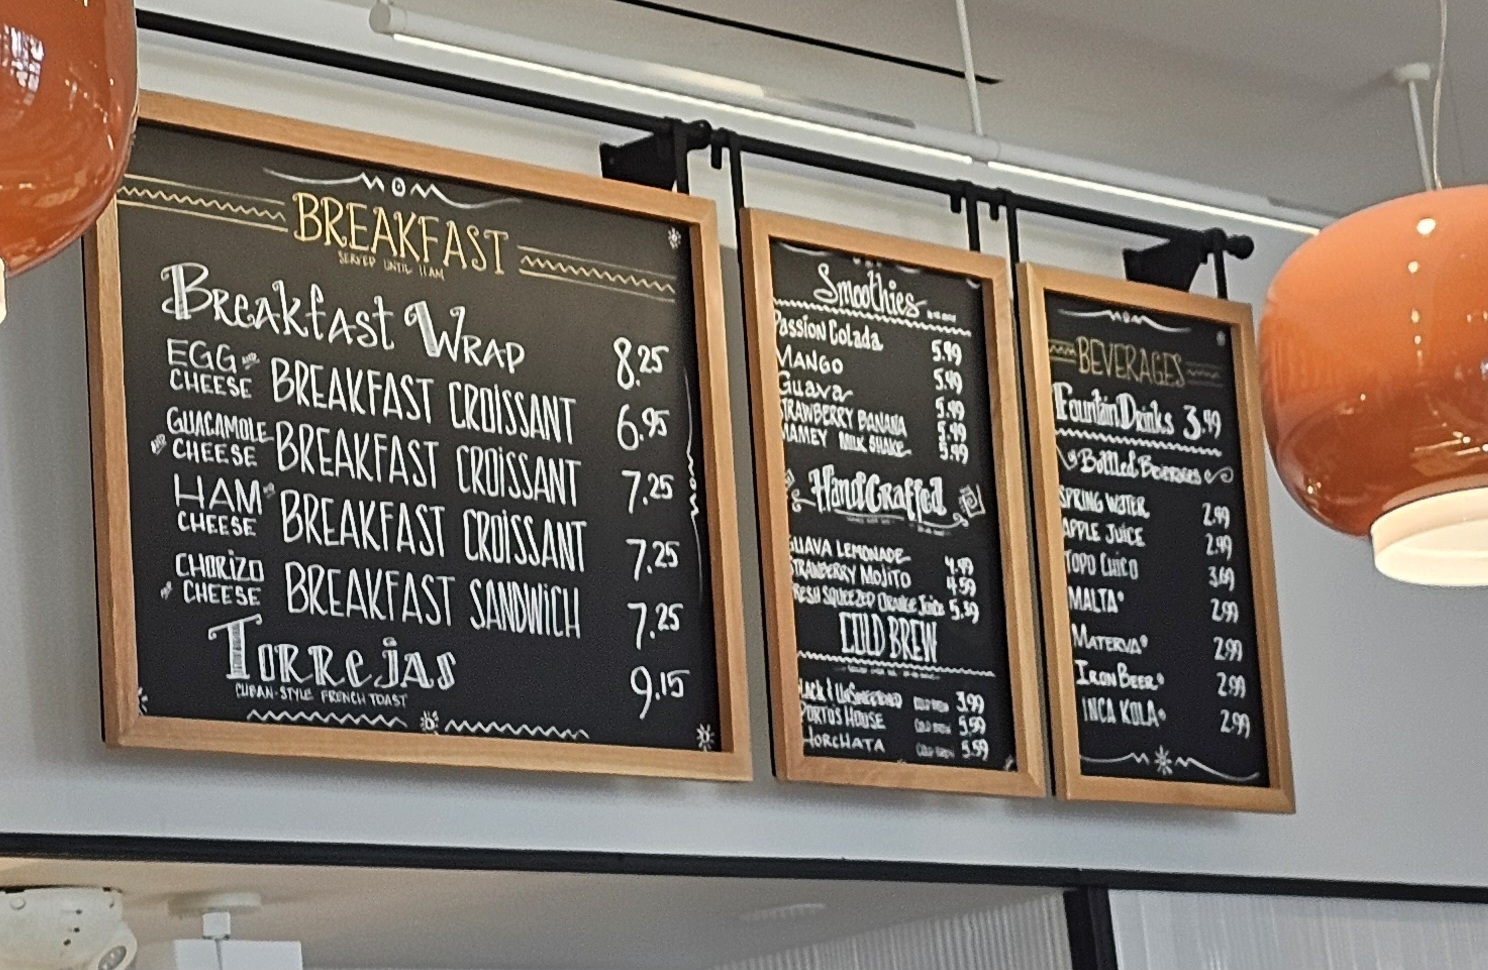 BREAKFAST
SERVED UNTIL 11AM
Breakfast Wrap 8.25
EGG AND CHEESE BREAKFAST CROISSANT 6.95
GUACAMOLE AND CHEESE BREAKFAST CROISSANT 7.25
HAM AND CHEESE BREAKFAST CROISSANT 7.25
CHORIZO AND CHEESE BREAKFAST SANDWICH 7.25
TORREJAS 9.15
CUBAN-STYLE FRENCH TOAST
Smoothies
Passion Colada 5.49
MANGO 5.49
Guava 5.49
STRAWBERRY BANANA 5.49
MAMEY MILK SHAKE 5.49
HandCrafted
GUAVA LEMONADE 4.49
STRAWBERRY MOJITO 4.59
FRESH SQUEEZED ORANGE JUICE 5.39
COLD BREW
BLACK & UNSWEETENED COLD BREW 3.99
PORTO'S HOUSE COLD BREW 5.59
HORCHATA COLD BREW 5.59
BEVERAGES
Fountain Drinks 3.49
Bottled Beverages
SPRING WATER 2.99
APPLE JUICE 2.99
TOPO CHICO 3.69
MALTA® 2.99
MATERVA® 2.99
IRON BEER® 2.99
INCA KOLA® 2.99